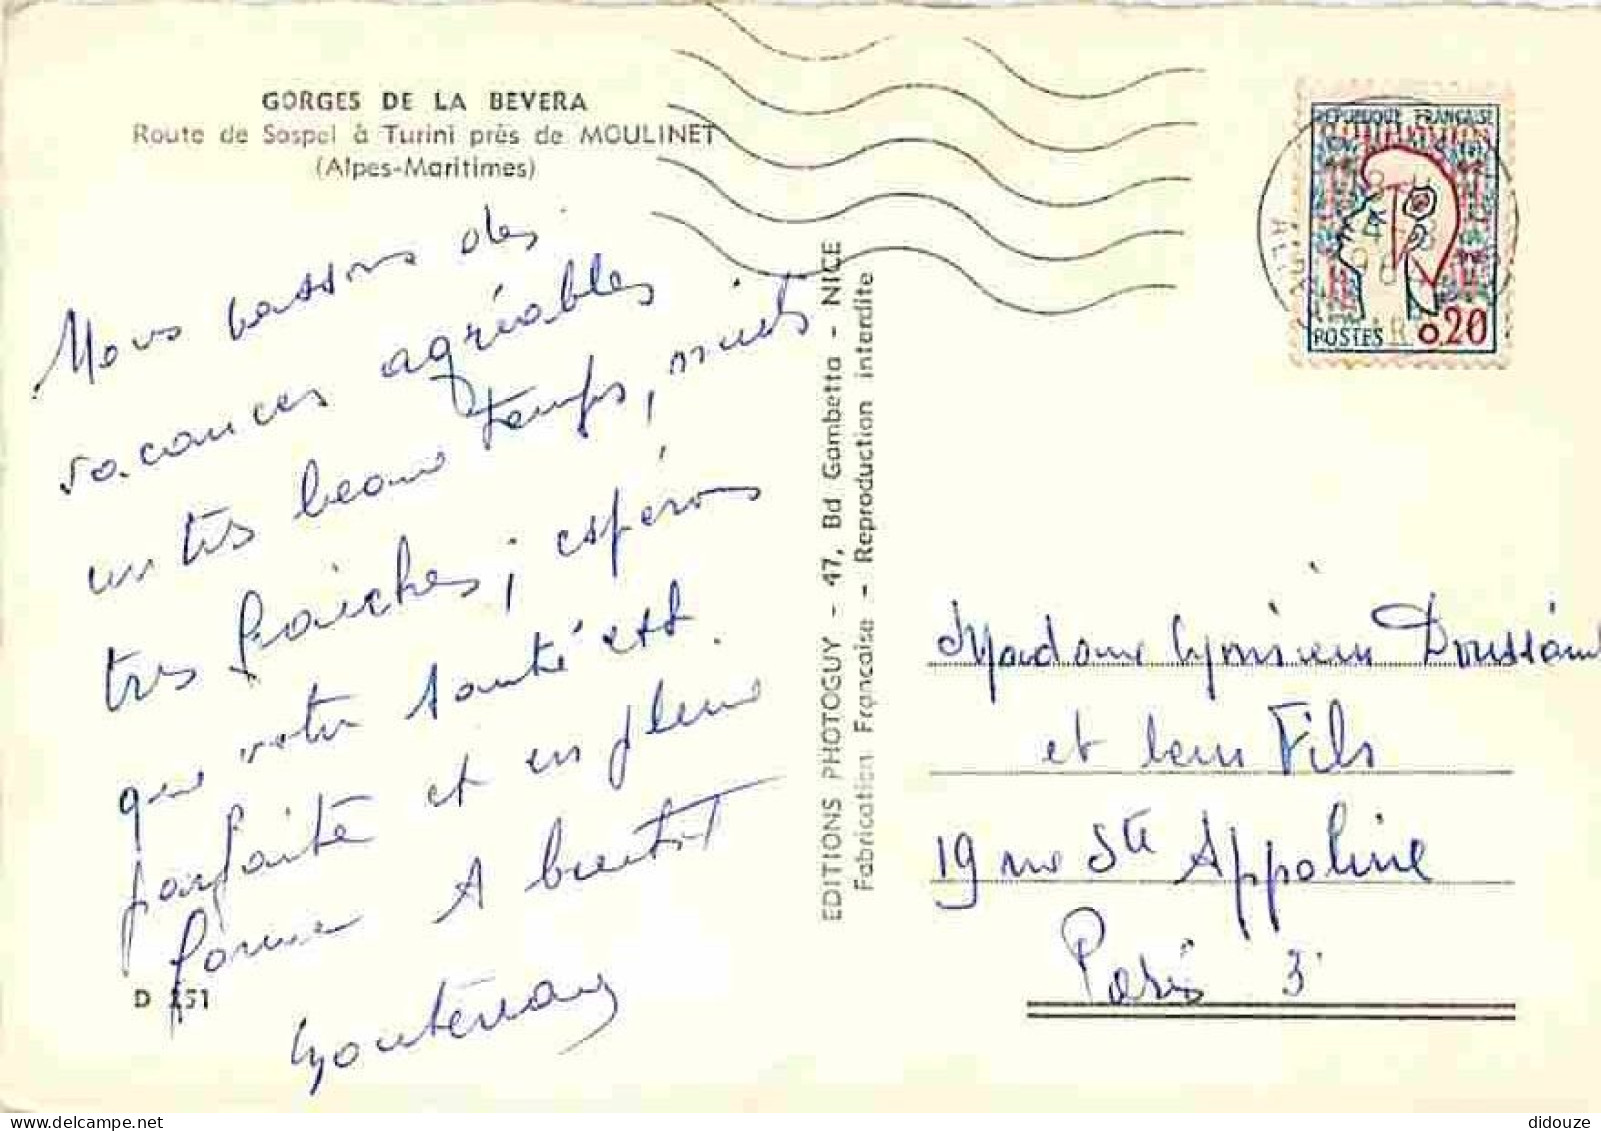 GORGES DE LA BEVERA
Route de Sospel à Turini près de MOULINET
(Alpes-Maritimes)
Nous passons des
vacances agréables
un très beau temps, nuits
très fraiches; espérons
que votre santé est
parfaite et en pleine
forme A bientôt
D 251
EDITIONS PHOTOGUY - 47, Bd Gambetta - NICE
Fabrication Française - Reproduction interdite
REPUBLIQUE FRANÇAISE
POSTES 0.20
Madame Monsieur Doussaint
et leur Fils
19 rue Ste Appoline
Paris 3
didouze